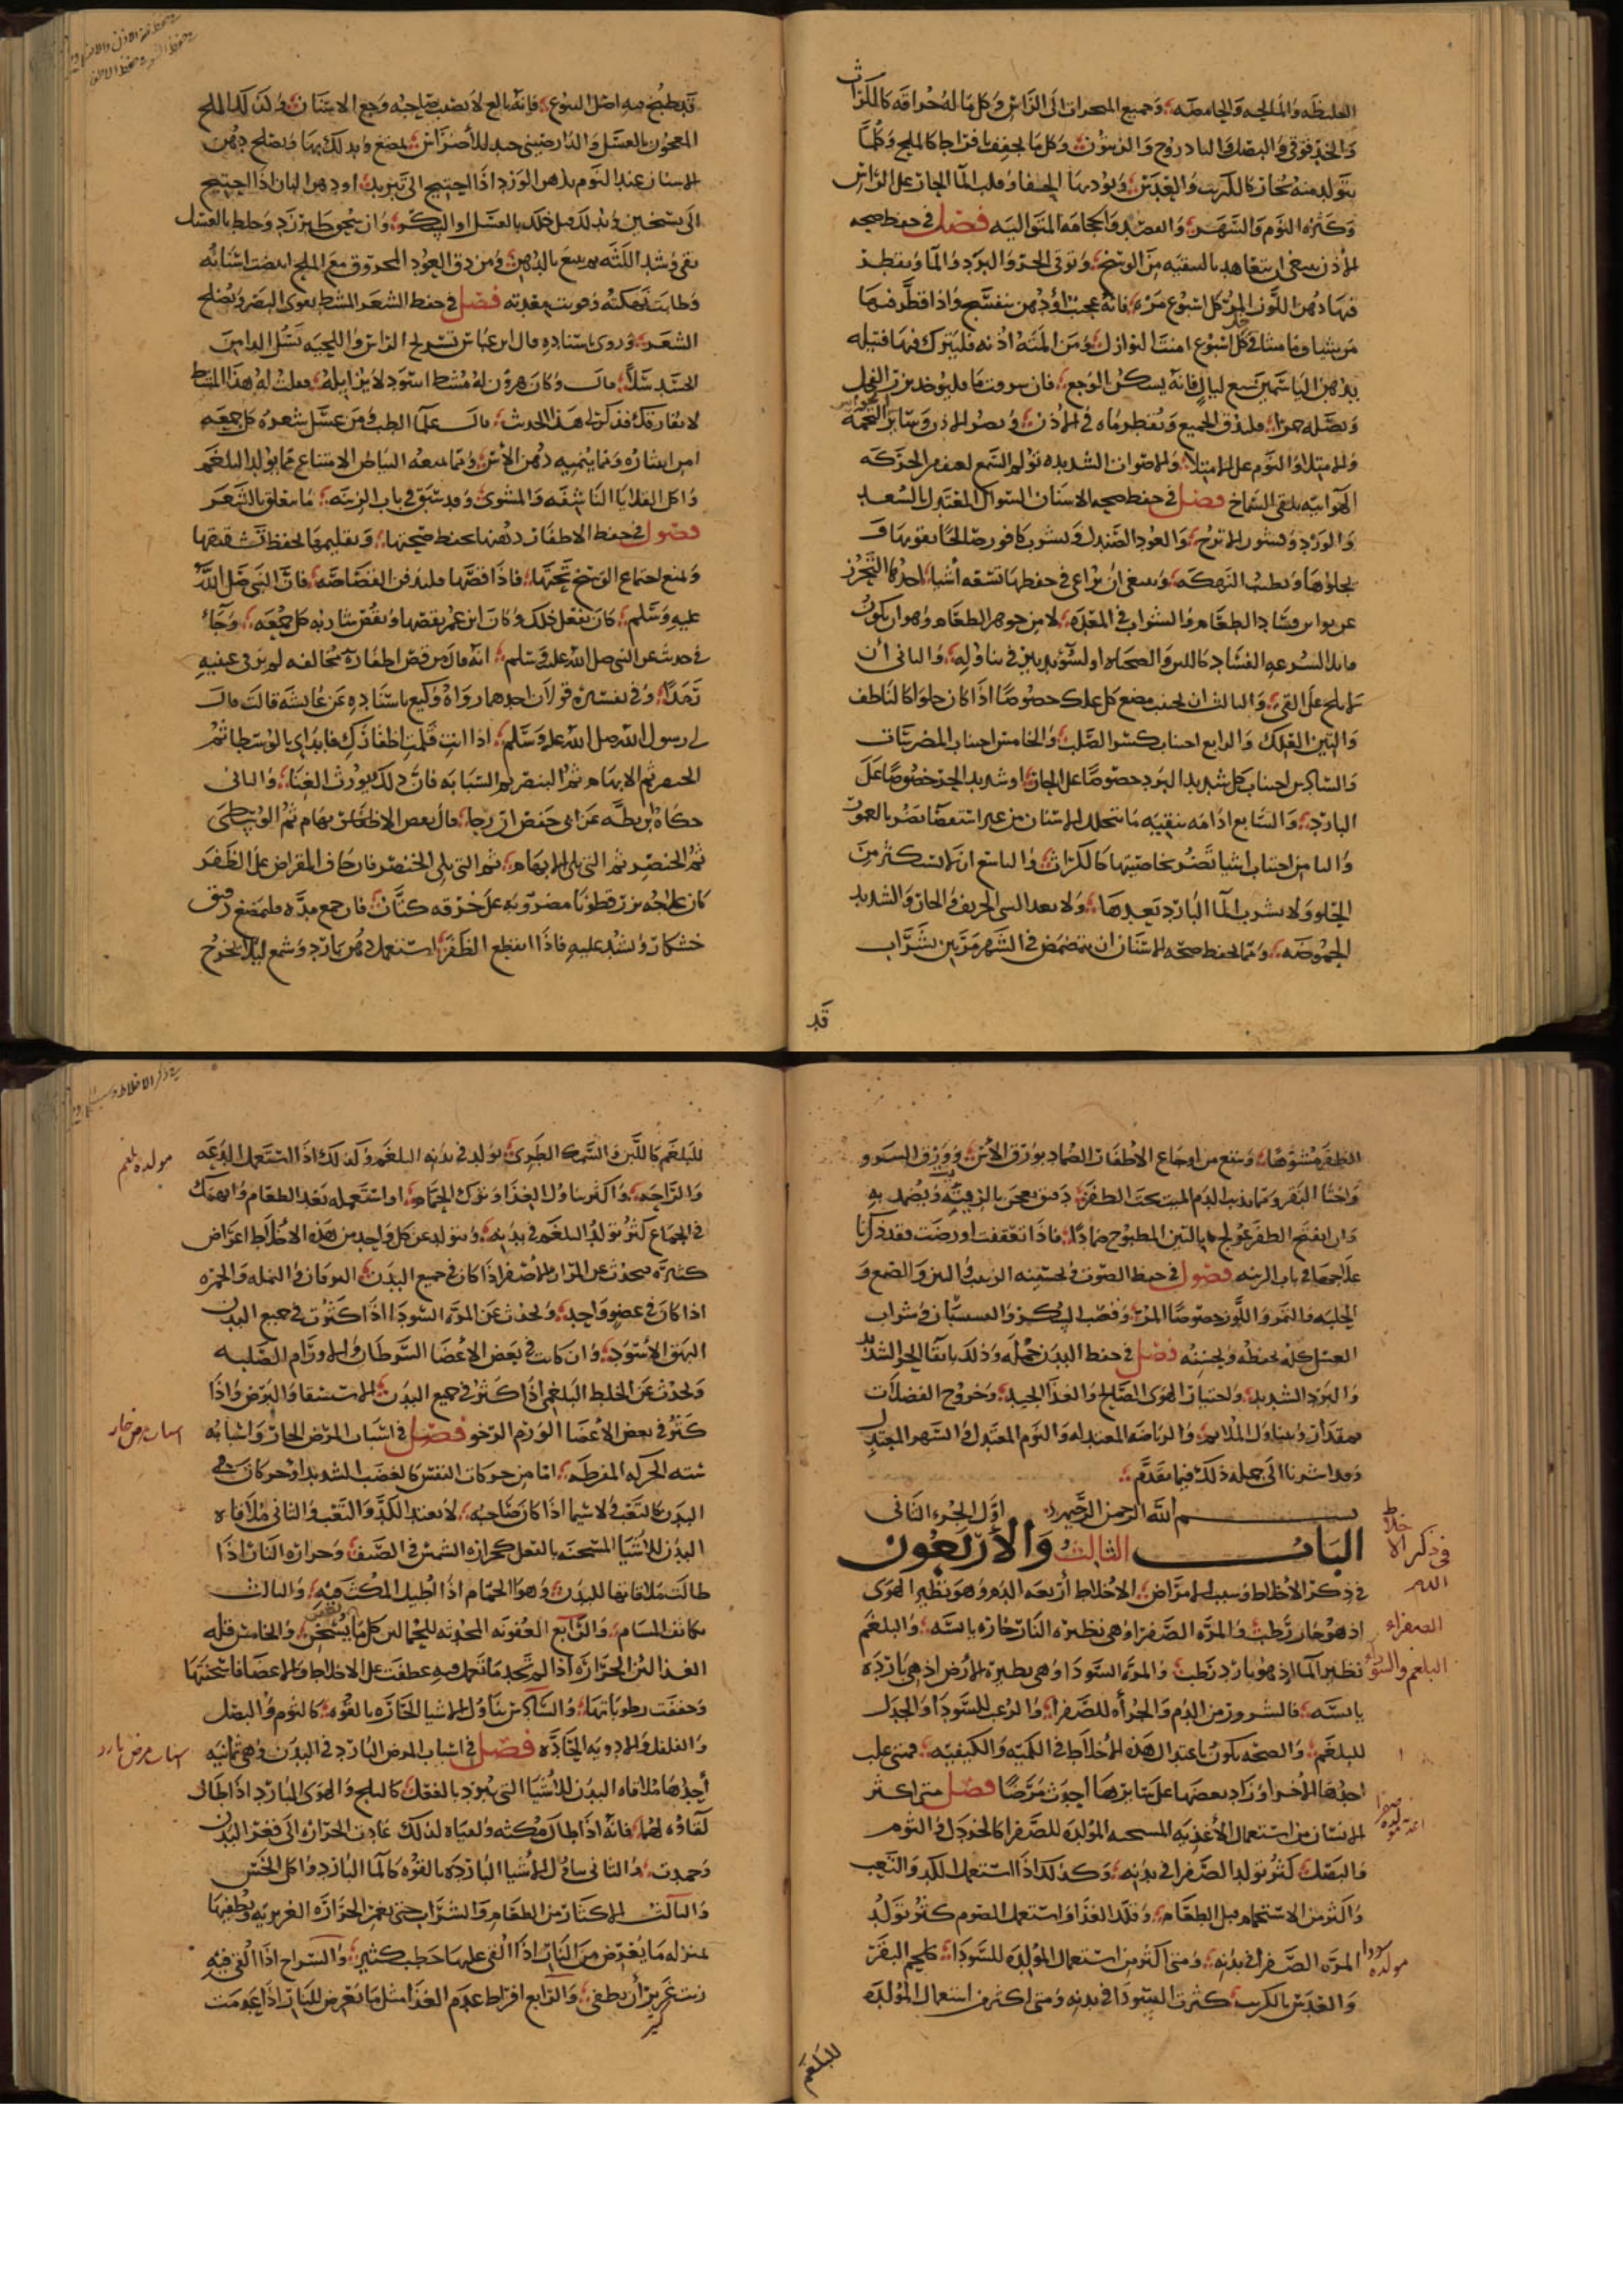 الغليظه والمالحه والحامضه وجميع المبخرات الى الراس وكل ما له حرافه كالكراث
والخندقوقى والبصل والبادروج والزيتون وكل ما يجفف افراطا كالملح وكلما
يتولد منه بخار كالكرنب والعدس ويؤدبها الحفا وقلب الما الحار على الراس
وكثره النوم والسهر والفصد والحجامه المتواليه فصل في حفظ صحه
الاذن ينبغى ان يتعاهد بالتنقيه من الوسخ وتوقى الحر والبرد والما ويقطر
فيها دهن اللوز المر كل اسبوع مره فانه عجيب او دهن بنفسج واذا قطر فيها
من شياف ماميثا في كل اسبوع امنت النوازل ومن المته اذنه فليترك فيها فتيله
بدهن الياسمين سبع ليال فانه يسكن الوجع فان
وبصله حمرا فليدق الجميع ويقطر ماه في الاذن ويضر الاذن وسائر الحواس التخمه
والامتلا والنوم على الامتلا والاصوات الشديده تولم السمع لعنف الحركه
الهوائيه بلقى الصماخ فصل في حفظ صحه الاسنان السواك المعتدل بالسعد
والورد وقشور الاترج والعود الصندل
يجلوها ويطيب النهكه وينبغى ان يراعى في حفظها تسعه اشيا احدها التحرز
عن تواتر فساد الطعام والشراب في المعده لا من جوهر الطعام وهو ان يكون
قابلا لسرعه الفساد كاللبن والصحناه او لسوء تدبير في تناوله والثانى أن
لا يلح على القى والثالث ان يجتنب مضغ كل علك خصوصا اذا كان حلوا كالناطف
والتين العلك والرابع اجتناب كسر الصلب والخامس اجتناب المضرسات
والسادس اجتناب كل شديد البرد خصوصا على الحار او شديد الحر خصوصا على
البارد والسابع ادامه تنقيه ما يتخلل الاسنان من غير استقصا يضر بالعمور
والثامن اجتناب اشيا تضر بخاصيتها كالكراث والتاسع ان لا يستكثر من
الحلو ولا يشرب الما البارد بعدها ولا بعد الشى الحريف والحار والشديد
الحموضه ومما يحفظ صحه الاسنان ان يتمضمض في الشهر مرتين بشراب
قد
قد طبخ فيه اصل اليتوع فانه بالغ لا يصيب صاحبه وجع الاسنان وكذلك الملح
المعجون بالعسل والدارصينى جيد للأضراس يمضغ ويدلك بها ويصلح دهن
الاسنان عند النوم بدهن الورد اذا احتيج الى تبريد او دهن البان اذا احتيج
الى تسخين ويدلك قبل ذلك بالعسل او السكر وان سحق طبرزد وخلط بالعسل
نقى وشد اللثه
وطابت نهكته وقويت معدته فصل في حفظ الشعر المشط يقوى البصر ويصلح
الشعر وروى باسناده قال ابن عباس تسريح الراس واللحيه يسل الدا من
الجسد سلا قال وكان هرون له مشط اسود لا يزايله فقلت له هذا المشط
لا يفارقك فذكر لى هذا الحديث قال علما الطب ومن غسل شعره كل جمعه
امن انتثاره ومما ينميه دهن الآس ومما يمنعه البياض الامتناع مما يولد البلغم
واكل القلايا الناشفه والمشوى وقد سبق في باب الزينه ما يتعلق بالشعر
فصول في حفظ الاظفار دهنها يحفظ صحتها وتقليمها يحفظ تشققها
ويمنع اجتماع الوسخ تحتها فاذا قصها فليدفن القصاصه فان النبى صلى الله
عليه وسلم كان يفعل ذلك وكان ابن عمر يقصها ويقص شاربه كل جمعه وجاء
في حديث عن النبى صلى الله عليه وسلم انه قال من قص اظفاره مخالفه لم ير في عينيه
رمدا وفي تفسيره قولان احدهما رواه وكيع باسناده عن عايشه قالت قال
لى رسول الله صلى الله عليه وسلم اذا انت قلمت اظفارك فابدائ بالوسطا ثم
الخنصر ثم الابهام ثم البنصر ثم السبابه فان ذلك يورث الغنا والثانى
حكاه ابن بطه عن ابى حفص ابن رجا قال بعض الاظفار بهام ثم الوسطى
ثم الخنصر ثم التى تلى الابهام ثم التى تلى الخنصر فان حاف المقراض على الظفر
كان علاجه بزر قطونا مضروبه على خرقه كتان فان جمع مده فليمضغ دقيق
خشكار ويشد عليه فاذا انقطع الظفر استعمل دهن بارد وشمع ليلا يخرج
الظفر مشوها وينفع من اوجاع الاظفار الضماد بورق الآس وورق السرو
واخثا البقر ومما يذيب الدم الميت تحت الظفر دقيق يعجن بالزفت ويضمد به
وان انفتح الظفر عولج بالتين المطبوخ ضمادا فاذا تعقفت اورضت فقد ذكرنا
علاجها في باب الزينه فصول في حفظ الصوت
الحلبه والتمر واللوز خصوصا المر وقصب السكر والسبستان وشراب
العسل كله يحفظه ويحسنه فصل في حفظ البدن جمله وذلك باتقا الحر الشديد
والبرد الشديد واختيار الهوى الصالح والغذا الجيد وخروج الفضلات
بمقدار وتناول الملايم والرياضه المعتدله والنوم المعتدل والسهر المعتدل
وقد اشرنا الى جمله ذلك فيما تقدم
بسم الله الرحمن الرحيم اول الجزء الثانى
الباب الثالث والأربعون
في ذكر الاخلاط وسبب الامراض الاخلاط أربعه الدم وهو نظير الهوى
اذ هو حار رطب والمره الصفرا وهى نظيره النار حاره يابسه والبلغم
نظير الما اذ هو بارد رطب والمره السودا وهى نظيره الارض اذ هى بارده
يابسه فالسرور من الدم والجرأه للصفرا والرعب للسودا والجدل
للبلغم والصحه تكون باعتدال هذه الاخلاط في الكميه والكيفيه فمتى غلب
احدها الأخر او زاد بعضها على سائرها أحدث مرضا فصل متى اكثر
الانسان من استعمال الأغذيه المسخنه المولده للصفرا كالخردل والثوم
والبصل كثر تولد الصفرا في بدنه وكذلك اذا استعمل الكد والتعب
واكثر من الاستحمام قبل الطعام وقلل الغذا واستعمل الصوم كثر تولد
المره الصفرا في بدنه ومتى اكثر من استعمال المولده للسودا كلحم البقر
والعدس بالكرنب كثرت السودا في بدنه ومتى اكثر من استعمال المولده
في ذكر الاخلاط
الدم
الصفراء
البلغم والسودا
مولده سودا
للبلغم
للبلغم كاللبن والسمك الطرى تولد في بدنه البلغم وكذلك اذا استعمل الدعه
والراحه واكثر تناول الغذا وترك الحمام او استعمله بعد الطعام وانهمك
في الجماع كثر تولد البلغم في بدنه ويتولد عن كل واحد من هذه الاخلاط اعراض
كثيره فيحدث عن المرار الاصفر اذا كان في جميع البدن اليرقان والنمله والحمره
اذا كان في عضو واحد ويحدث عن المره السودا اذا كثرت في جميع البدن
البهق الأسود وان كانت في بعض الأعضا السرطان والاورام الصلبه
ويحدث عن الخلط البلغمى اذا كثر في جميع البدن الاستسقا والبرص واذا
كثر في بعض الأعضا الورم الرخو فصل في اسباب المرض الحار واسبابه
سته الحركه المفرطه اما من حركات النفس كالغضب الشديد او حركات
البدن كالتعب ولا سيما اذا كان صاحبه لا يعتاد الكد والتعب والثانى ملاقاه
البدن للأشيا المسخنه بالفعل كحراره الشمس في الصيف وحراره النار اذا
طالت ملاقاتها للبدن وهو الحمام اذا اطيل المكث فيه والثالث
تكاثف المسام والرابع العفونه المحدثه للحمى لان كل ما يعفن يسخن والخامس قله
الغذا لان الحراره اذا لم تجد ما تعمل فيه عطفت على الاخلاط والاعضا فاسخنتها
وجففت رطوباتها والسادس تناول الاشيا الحاره بالقوه كالثوم والبصل
والفلفل والادويه الحاده فصل في اسباب المرض البارد في البدن وهى ثمانيه
أحدها ملاقاه البدن للأشيا التى تبرد بالفعل كالثلج والهوى البارد اذا طال
لقاؤه لها فانه اذا طال مكثه ولقياه لذلك غارت الحراره الى قعر البدن
وخمدت والثانى تناول الأشيا البارده بالقوه كالما البارد واكل الخس
والثالث الاكثار من الطعام والشراب حتى يغمر الحراره الغريزيه ويطفيها
بمنزله ما يعرض من النار اذا القى عليها حطب كثير والسراج اذا القى فيه
زيت غزير أن يطفى والرابع افراط عدم الغذا مثل ما يعرض للنار اذا عدمت
مولده بلغم
اسباب مرض حار
اسباب مرض بارد